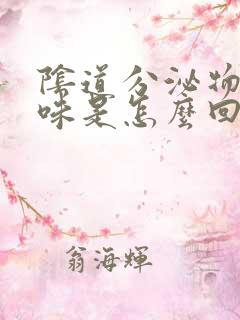 陰道分泌物
味是怎麼回
翁海輝